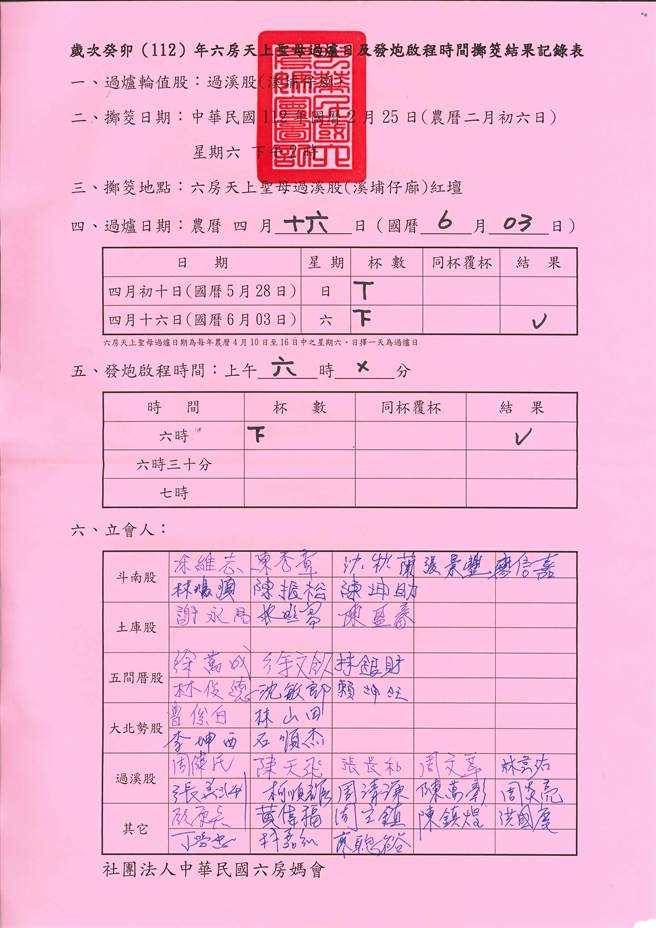 歲次癸卯（112）年六房天上聖母過爐日及發炮啟程時間擲筊結果記錄表
一、過爐輪值股：過溪股(溪埔仔廍)
二、擲筊日期：中華民國112年國曆2月25日(農曆二月初六日)
星期六 下午2時
三、擲筊地點：六房天上聖母過溪股(溪埔仔廍)紅壇
四、過爐日期：農曆 四 月十六日（國曆6月03日）
日 期 星 期 杯 數 同杯覆杯 結 果
四月初十日(國曆5月28日) 日 丅
四月十六日(國曆6月03日) 六 下 ✓
六房天上聖母過爐日期為每年農曆4月10日至16日中之星期六、日擇一天為過爐日
五、發炮啟程時間：上午六時×分
時 間 杯 數 同杯覆杯 結 果
六時 下 ✓
六時三十分
七時
六、立會人：
斗南股 涂維志 陳秀章 張景豐 廖信嘉
陳振裕 陳坤助
土庫股 謝永昌
五間厝股 徐萬成 林銀財
林俊德 沈敏郎 賴坤旺
大北勢股 曾俊白 林山田
李坤西 石順杰
過溪股 周偉民 陳天飛 張長和 周文章
周清源 陳萬彰
其它 黃偉福 周立鎮 陳鎮煌 洪國慶
社團法人中華民國六房媽會